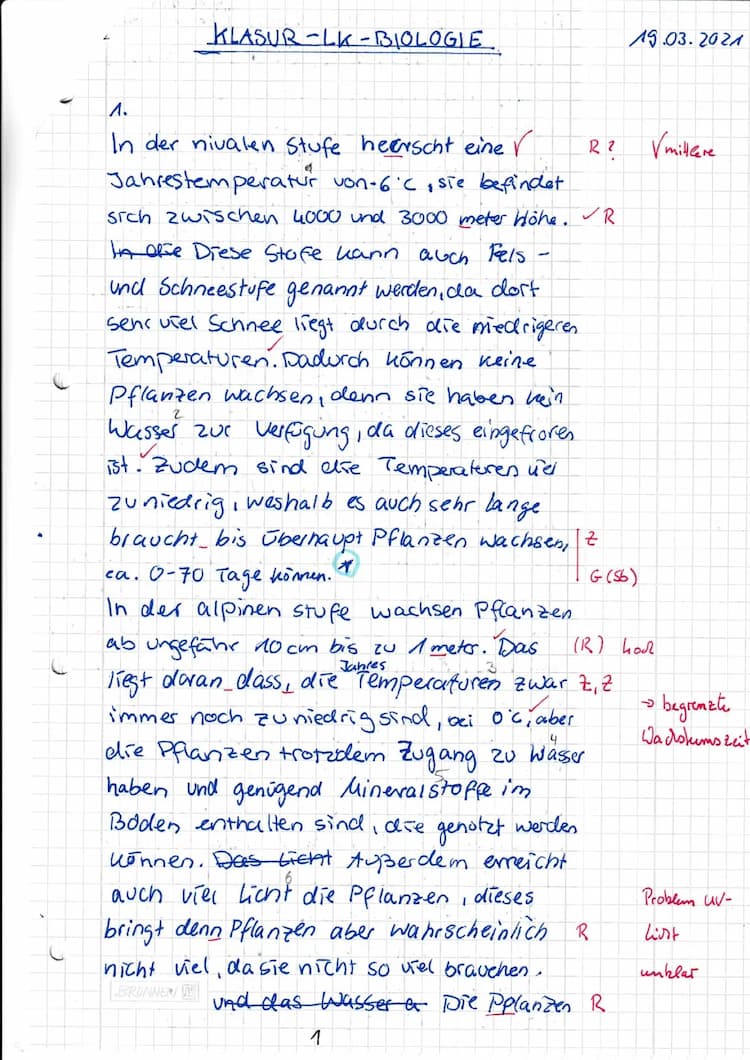 KLASUR-LK-BIOLOGIE 19.03.2021
1.
In der nivalen Stufe heerscht eine √ R? √ mittlere
Jahrestemperatur von -6°C, sie befindet
sich zwischen 4000 und 3000 meter Höhe. ✓ R
In die Diese Stofe kann auch Fels-
und Schneestufe genannt werden, da dort
sehr viel Schnee liegt durch die niedrigeren
Temperaturen. Dadurch können keine
Pflanzen wachsen, denn sie haben kein
Wasser zur Verfügung, da dieses eingefroren
2
ist. Zudem sind die Temperaturen viel
zu niedrig, weshalb es auch sehr lange
braucht_bis überhaupt Pflanzen wachsen, Z
ca. 0-70 Tage können. * G(Sb)
In der alpinen Stufe wachsen Pflanzen
ab ungefähr 10 cm bis zu 1 meter. Das (R)
liegt daran_dass, die Jahres Temperaturen zwar Z, Z
3
→ begrenzte
immer noch zu niedrig sind, bei 0°C, aber
Wachstumszeit
die Pflanzen trotzdem Zugang zu Wasser
4
haben und genügend Mineralstoffe im
5
Boden enthalten sind, die genutzt werden
können. Das Licht Außerdem erreicht
auch viel Licht die Pflanzen, dieses Problem UV-
6
bringt denn Pflanzen aber wahrscheinlich R Licht
nicht viel, da sie nicht so viel brauchen. unklar
BRUNNEN
und das Wasser a Die Pplanzen R
1